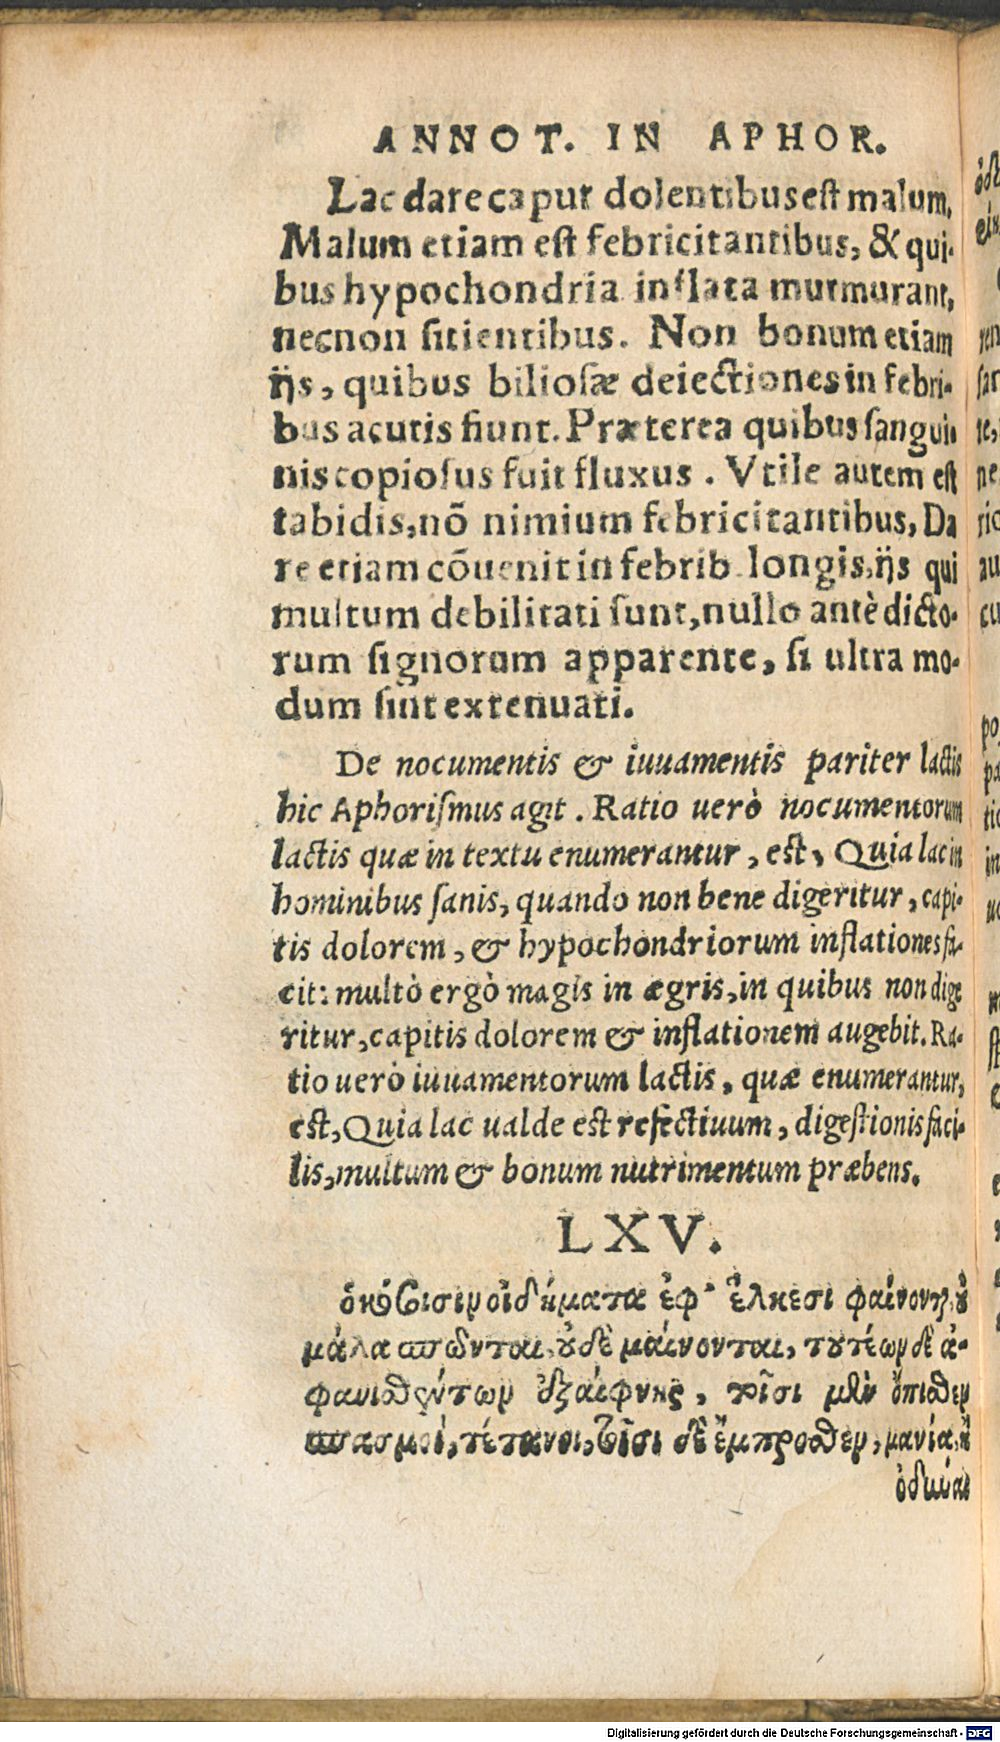 ANNOT. IN APHOR.
Lac dare caput dolentibus est malum,
Malum etiam est febricitantibus, & qui-
bus hypochondria inflata murmurant,
necnon sitientibus. Non bonum etiam
ijs, quibus biliosæ deiectiones in febri-
bus acutis fiunt. Præterea quibus sangui-
nis copiosus fuit fluxus. Vtile autem est
tabidis, nõ nimium febricitantibus, Da
re etiam cõuenit in febrib. longis, ijs qui
multum debilitati sunt, nullo antè dicto-
rum signorum apparente, si ultra mo-
dum sint extenuati.
De nocumentis & iuuamentis pariter lactis
hic Aphorismus agit. Ratio uerò nocumentorum
lactis quæ in textu enumerantur, est, Quia lac in
hominibus sanis, quando non bene digeritur, capi-
tis dolorem, & hypochondriorum inflationes fa-
cit: multò ergò magis in ægris, in quibus non dige
ritur, capitis dolorem & inflationem augebit. Ra-
tio uerò iuuamentorum lactis, quæ enumerantur,
est, Quia lac ualde est refectiuum, digestionis faci-
lis, multum & bonum nutrimentum præbens.
LXV.
ὁκόσοισιν οἰδήματα ἐφ' ἕλκεσι φαίνονται, οὐ
μάλα σπῶνται, οὐδὲ μαίνονται, τουτέων δὲ ἀ-
φανισθέντων ἐξαίφνης, τοῖσι μὲν ὄπισθεν
σπασμοί, τέτανοι, τοῖσι δὲ ἔμπροσθεν, μανία, ἢ
ὀδύναι
Digitalisierung gefördert durch die Deutsche Forschungsgemeinschaft - DFG